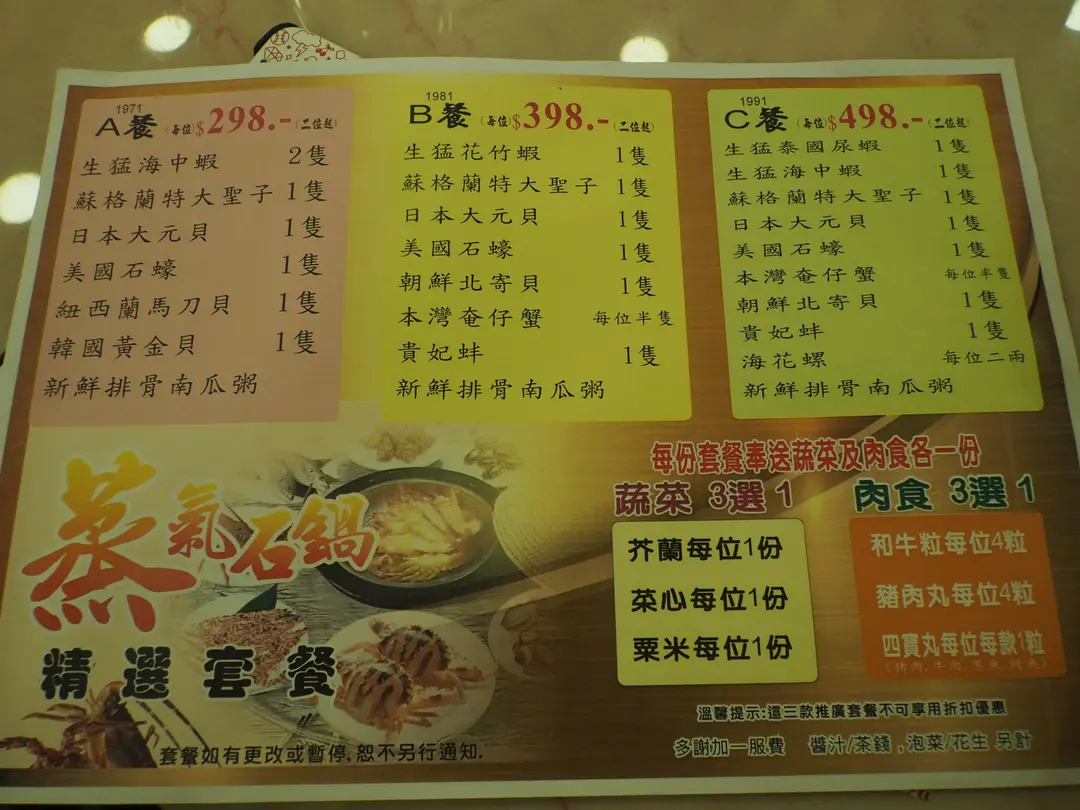 1971
A餐 (每位)$298.-(二位起)
生猛海中蝦 2隻
蘇格蘭特大聖子 1隻
日本大元貝 1隻
美國石蠔 1隻
紐西蘭馬刀貝 1隻
韓國黃金貝 1隻
新鮮排骨南瓜粥
1981
B餐 (每位)$398.-(二位起)
生猛花竹蝦 1隻
蘇格蘭特大聖子 1隻
日本大元貝 1隻
美國石蠔 1隻
朝鮮北寄貝 1隻
本灣奄仔蟹 每位半隻
貴妃蚌 1隻
新鮮排骨南瓜粥
1991
C餐 (每位)$498.-(二位起)
生猛泰國尿蝦 1隻
生猛海中蝦 1隻
蘇格蘭特大聖子 1隻
日本大元貝 1隻
美國石蠔 1隻
本灣奄仔蟹 每位半隻
朝鮮北寄貝 1隻
貴妃蚌 1隻
海花螺 每位二兩
新鮮排骨南瓜粥
蒸氣石鍋
精選套餐
套餐如有更改或暫停,恕不另行通知.
每份套餐奉送蔬菜及肉食各一份
蔬菜 3選1
芥蘭每位1份
菜心每位1份
粟米每位1份
肉食 3選1
和牛粒每位4粒
豬肉丸每位4粒
四寶丸每位每款1粒
溫馨提示:這三款推廣套餐不可享用折扣優惠
多謝加一服費 醬汁/茶錢,泡菜/花生 另計